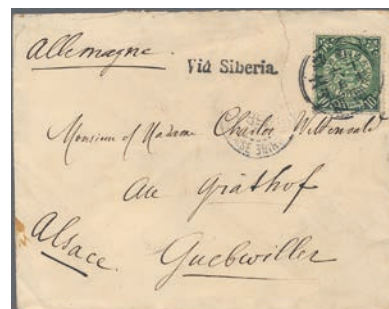 Allemagne.
Via Siberia.
Monsieur et Madame Charles Wildenwald
Au Gräthof
Alsace. Guebwiller